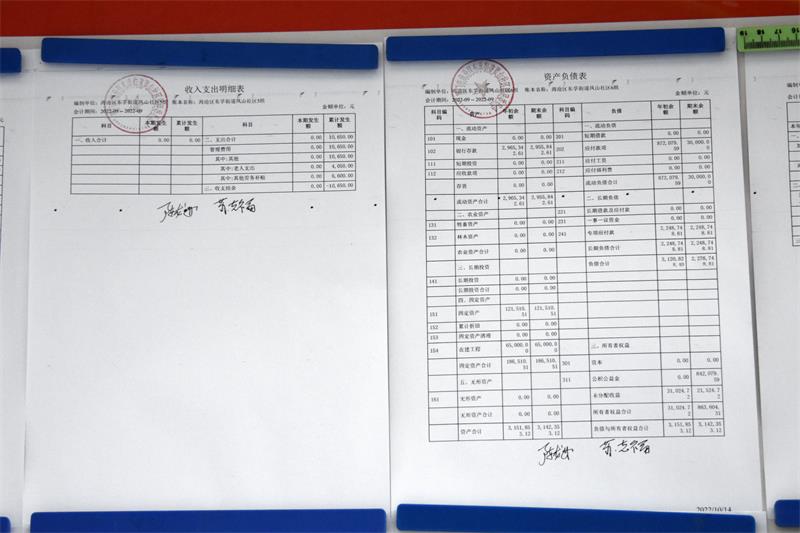 收入支出明细表
编制单位：海沧区东孚街道凤山社区5组 账本名称：海沧区东孚街道凤山社区5组
会计期间：2022-09－2022-09 金额单位：元
科目 本期发生额 累计发生额 科目 本期发生额 累计发生额
一、收入合计 0.00 0.00 二、支出合计 0.00 10,650.00
管理费用 0.00 10,650.00
其中:其他 0.00 10,650.00
其中:老人支出 0.00 4,050.00
其中:其他劳务补贴 0.00 6,600.00
三、收支结余 0.00 -10,650.00
资产负债表
编制单位：海沧区东孚街道凤山社区6组 账本名称：海沧区东孚街道凤山社区6组
会计期间：2022-09－2022-09 金额单位：元
科目编码 资产 年初余额 期末余额 科目编码 负债 年初余额 期末余额
一、流动资产 一、流动负债
101 现金 0.00 0.00 201 短期借款 0.00 0.00
102 银行存款 2,965,342.61 2,955,842.61 202 应付款项 872,079.59 30,000.00
111 短期投资 0.00 0.00 211 应付工资 0.00 0.00
112 应收款项 0.00 0.00 212 应付福利费 0.00 0.00
存货 0.00 0.00 流动负债合计 872,079.59 30,000.00
流动资产合计 2,965,342.61 2,955,842.61 二、长期负债
二、农业资产 221 长期借款及应付款 0.00 0.00
131 牲畜资产 0.00 0.00 231 一事一议资金 0.00 0.00
132 林木资产 0.00 0.00 241 专项应付款 2,248,748.81 2,248,748.81
农业资产合计 0.00 0.00 长期负债合计 2,248,748.81 2,248,748.81
三、长期投资 负债合计 3,120,828.40 2,278,748.81
141 长期投资 0.00 0.00
长期投资合计 0.00 0.00
四、固定资产
151 固定资产 121,510.51 121,510.51
152 累计折旧 0.00 0.00
153 固定资产清理 0.00 0.00
154 在建工程 65,000.00 65,000.00 三、所有者权益
固定资产合计 186,510.51 186,510.51 301 资本 0.00 0.00
五、无形资产 311 公积公益金 0.00 842,079.59
161 无形资产 0.00 0.00 未分配收益 31,024.72 21,524.72
无形资产合计 0.00 0.00 所有者权益合计 31,024.72 863,604.31
资产合计 3,151,853.12 3,142,353.12 负债与所有者权益合计 3,151,853.12 3,142,353.12
2022/10/14